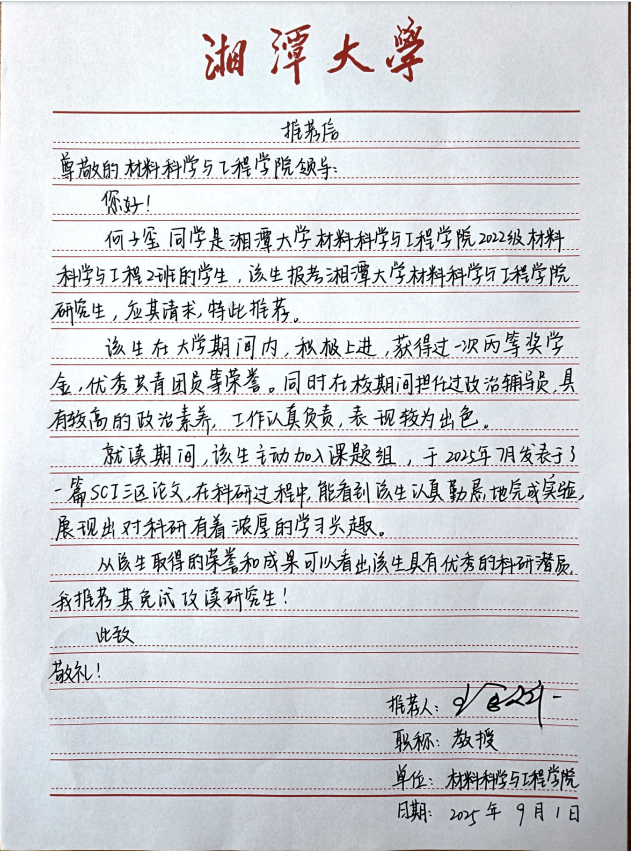 湘潭大学
推荐信
尊敬的材料科学与工程学院领导:
您好!
何子玺同学是湘潭大学材料科学与工程学院2022级材料
科学与工程2班的学生,该生报考湘潭大学材料科学与工程学院
研究生,应其请求,特此推荐。
该生在大学期间内,积极上进,获得过一次丙等奖学
金,优秀共青团员等荣誉。同时在校期间担任过政治辅导员,具
有较高的政治素养,工作认真负责,表现较为出色。
就读期间,该生主动加入课题组,于2025年7月发表于了
一篇SCI三区论文,在科研过程中,能看到该生认真勤恳地完成实验,
展现出对科研有着浓厚的学习兴趣。
从该生取得的荣誉和成果可以看出该生具有优秀的科研潜质,
我推荐其免试攻读研究生!
此致
敬礼!
推荐人:
职称:教授
单位:材料科学与工程学院
日期:2025年9月1日